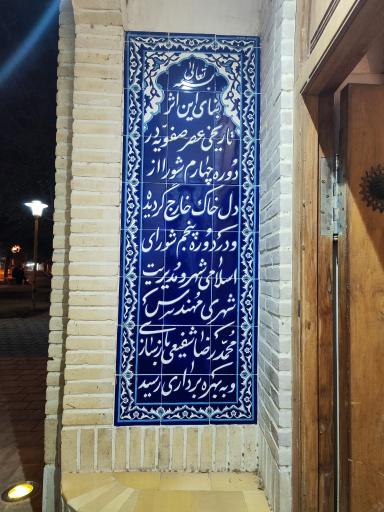 بسمه تعالی
بنای این اثر
تاریخی عصر صفویه در
دوره چهارم شورا از
دل خاک خارج گردید
و در دوره پنجم شورای
اسلامی شهر و مدیریت
شهری مهندس
محمدرضا شفیعی بازسازی
و به بهره برداری رسید